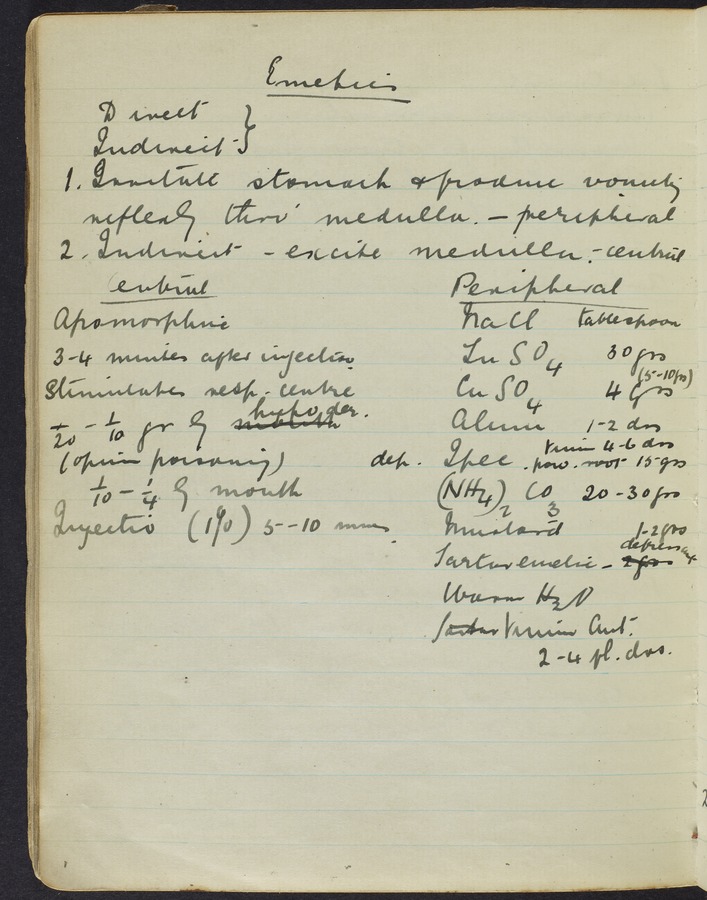 Emetics
Direct }
Indirect }
1. Irritate stomach & produce vomiting
reflexly thro' medulla. - peripheral
2. Indirect - excite medulla - central
Central
Apomorphine
3-4 minutes after injection
Stimulates resp. centre
1/20 - 1/10 gr by mouth hypoder.
(opium poisoning)
1/10 - 1/4 by mouth
Injectio (1%) 5--10 mins
Peripheral
NaCl tablespoon
Zn SO4 30 grs
Cu SO4 4 grs (5-10 grs)
Alum 1-2 drs
dep. Ipec. Vinum 4-6 drs
pow. root 15 grs
(NH4)2 CO3 20-30 grs
Mustard
Tartar emetic - 2 grs depressant
Warm H2O
Tartar Vinum Ant.
2-4 fl. drs.